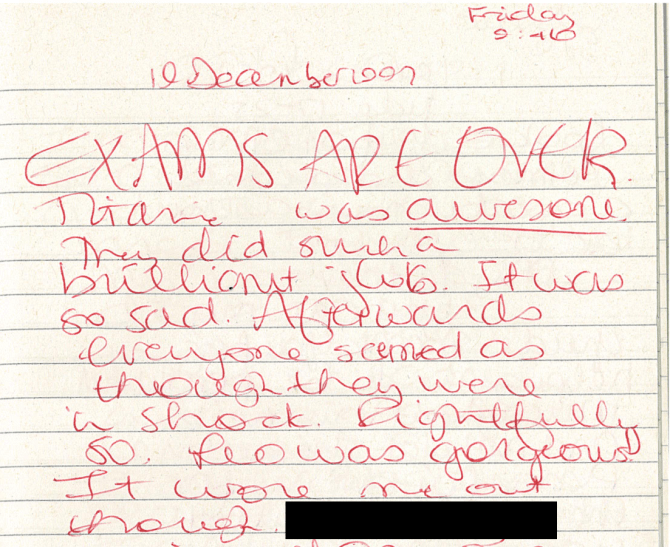 Friday
9:46
EXAMS ARE OVER.
was awesome
They did such a
brilliant job. It was
so sad. Afterwards
everyone seemed as
though they were
in shock. Rightfully
so. Leo was gorgeous
It wore me out
though.